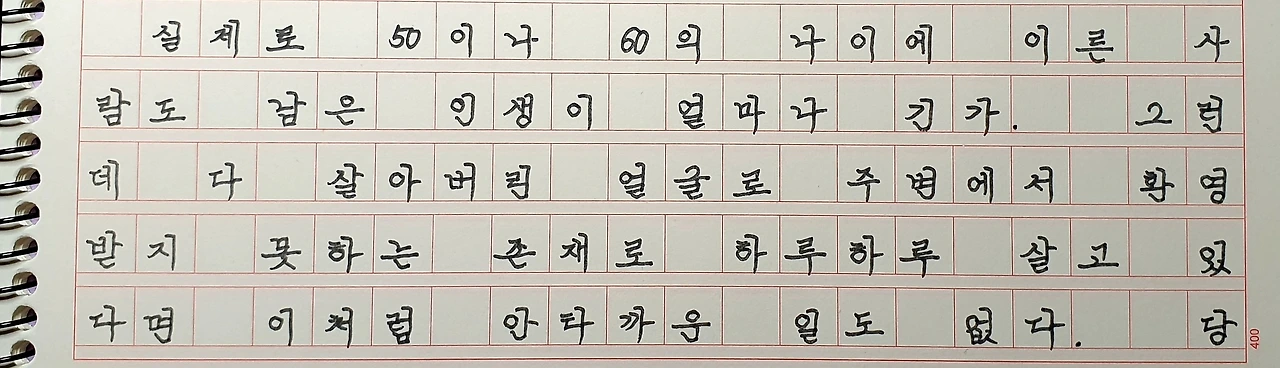 실제로 50이나 60의 나이에 이른 사
람도 다 남은 인생이 얼마나 긴가. 그런
데 다 살아버린 얼굴로 주변에서 환영
받지 못하는 존재로 하루하루 살고 있
다면 이처럼 안타까운 일도 없다. 당
400